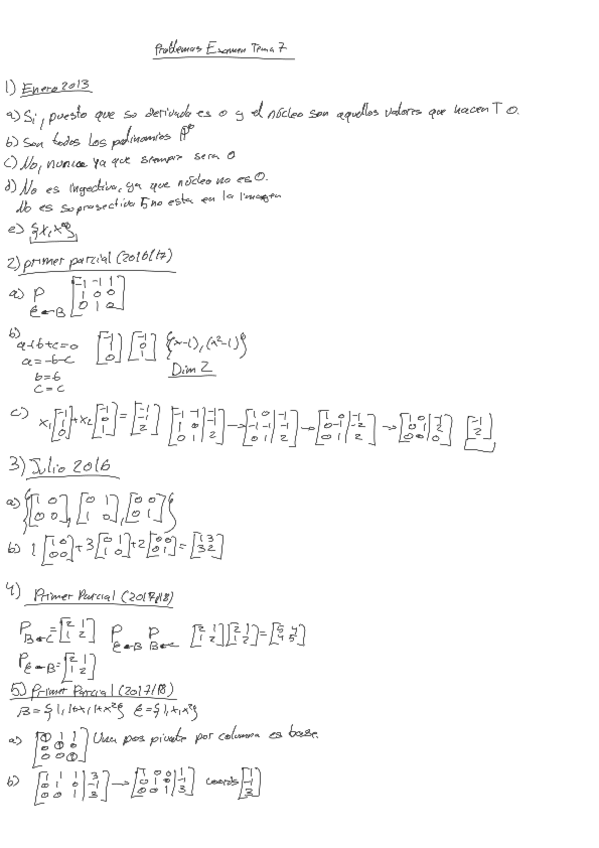 Problemas Examen Tema 7
1) Enero 2013
a) Si, puesto que su derivada es 0 y el núcleo son aquellos valores que hacen T 0.
b) Son todos los polinomios P⁰
c) No, nunca ya que siempre sera 0
d) No es ingectiva, ya que núcleo no es 0.
No es suprasectiva 5 no esta en la imagen
e) {x, x²}
2) primer parcial (2016/17)
a) P C←B [-1 -1 1; 1 0 0; 0 1 0]
b) a+b+c=0 [-1; 1; 0] [-1; 0; 1] {(x-1), (x²-1)}
a=-b-c Dim 2
b=b
c=c
c) x₁[-1; 1; 0]+x₂[-1; 0; 1]=[-1; -1; 2] [-1 -1|-1; 1 0|-1; 0 1|2] → [1 0|-1; -1 -1|-1; 0 1|2] → [1 0|-1; 0 -1|-2; 0 1|2] → [1 0|-1; 0 1|2; 0 0|0] [-1; 2]
3) Julio 2016
a) {[1 0; 0 0], [0 1; 1 0], [0 0; 0 1]}
b) 1[1 0; 0 0]+3[0 1; 1 0]+2[0 0; 0 1]=[1 3; 3 2]
4) Primer Parcial (2017/18)
P B←C=[2 1; 1 2] P C←B P B←C [2 1; 1 2][2 1; 1 2]=[5 4; 4 5]
P C←B=[2 1; 1 2]
5) Primer Parcial (2017/18)
B={1, 1+x, 1+x²} C={1, x, x²}
a) [1 1 1; 0 1 0; 0 0 1] Una pos pivote por columna es base.
b) [1 1 1|3; 0 1 0|-1; 0 0 1|3] → [1 0 0|1; 0 1 0|-1; 0 0 1|3] coords [1; -1; 3]